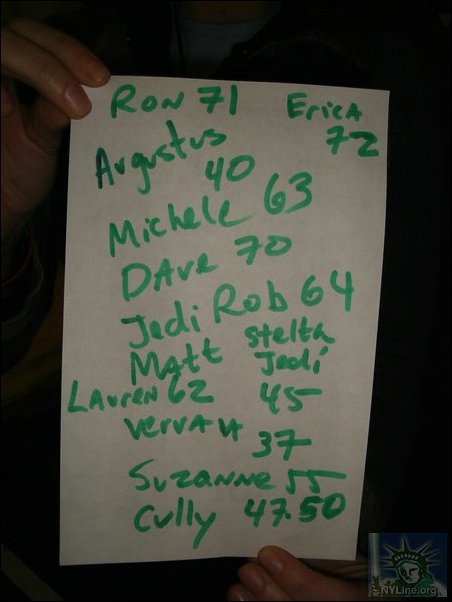 Ron 71 Erica
72
Augustus
40
Michele 63
Dave 70
Jedi Rob 64
Matt Stelth
Jedi
Lauren 62 45
37
Suzanne 55
Cully 47.50
NYLine.org